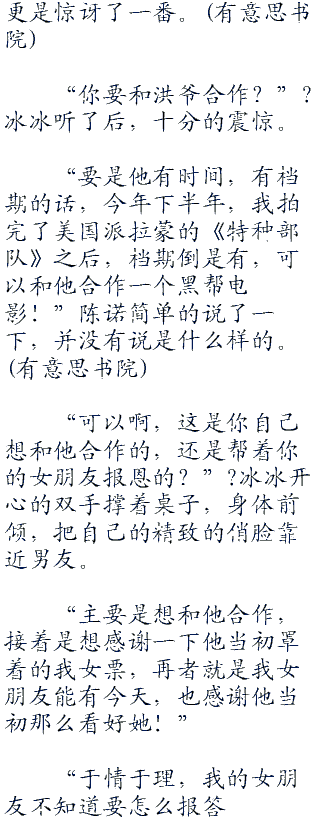 更是惊讶了一番。(有意思书
院)
“你要和洪爷合作？”？
冰冰听了后，十分的震惊。
“要是他有时间，有档
期的话，今年下半年，我拍
完了美国派拉蒙的《特种部
队》之后，档期倒是有，可
以和他合作一个黑帮电
影！”陈诺简单的说了一
下，并没有说是什么样的。
(有意思书院)
“可以啊，这是你自己
想和他合作的，还是帮着你
的女朋友报恩的？”?冰冰开
心的双手撑着桌子，身体前
倾，把自己的精致的俏脸靠
近男友。
“主要是想和他合作，
接着是想感谢一下他当初罩
着的我女票，再者就是我女
朋友能有今天，也感谢他当
初那么看好她！”
“于情于理，我的女朋
友不知道要怎么报答